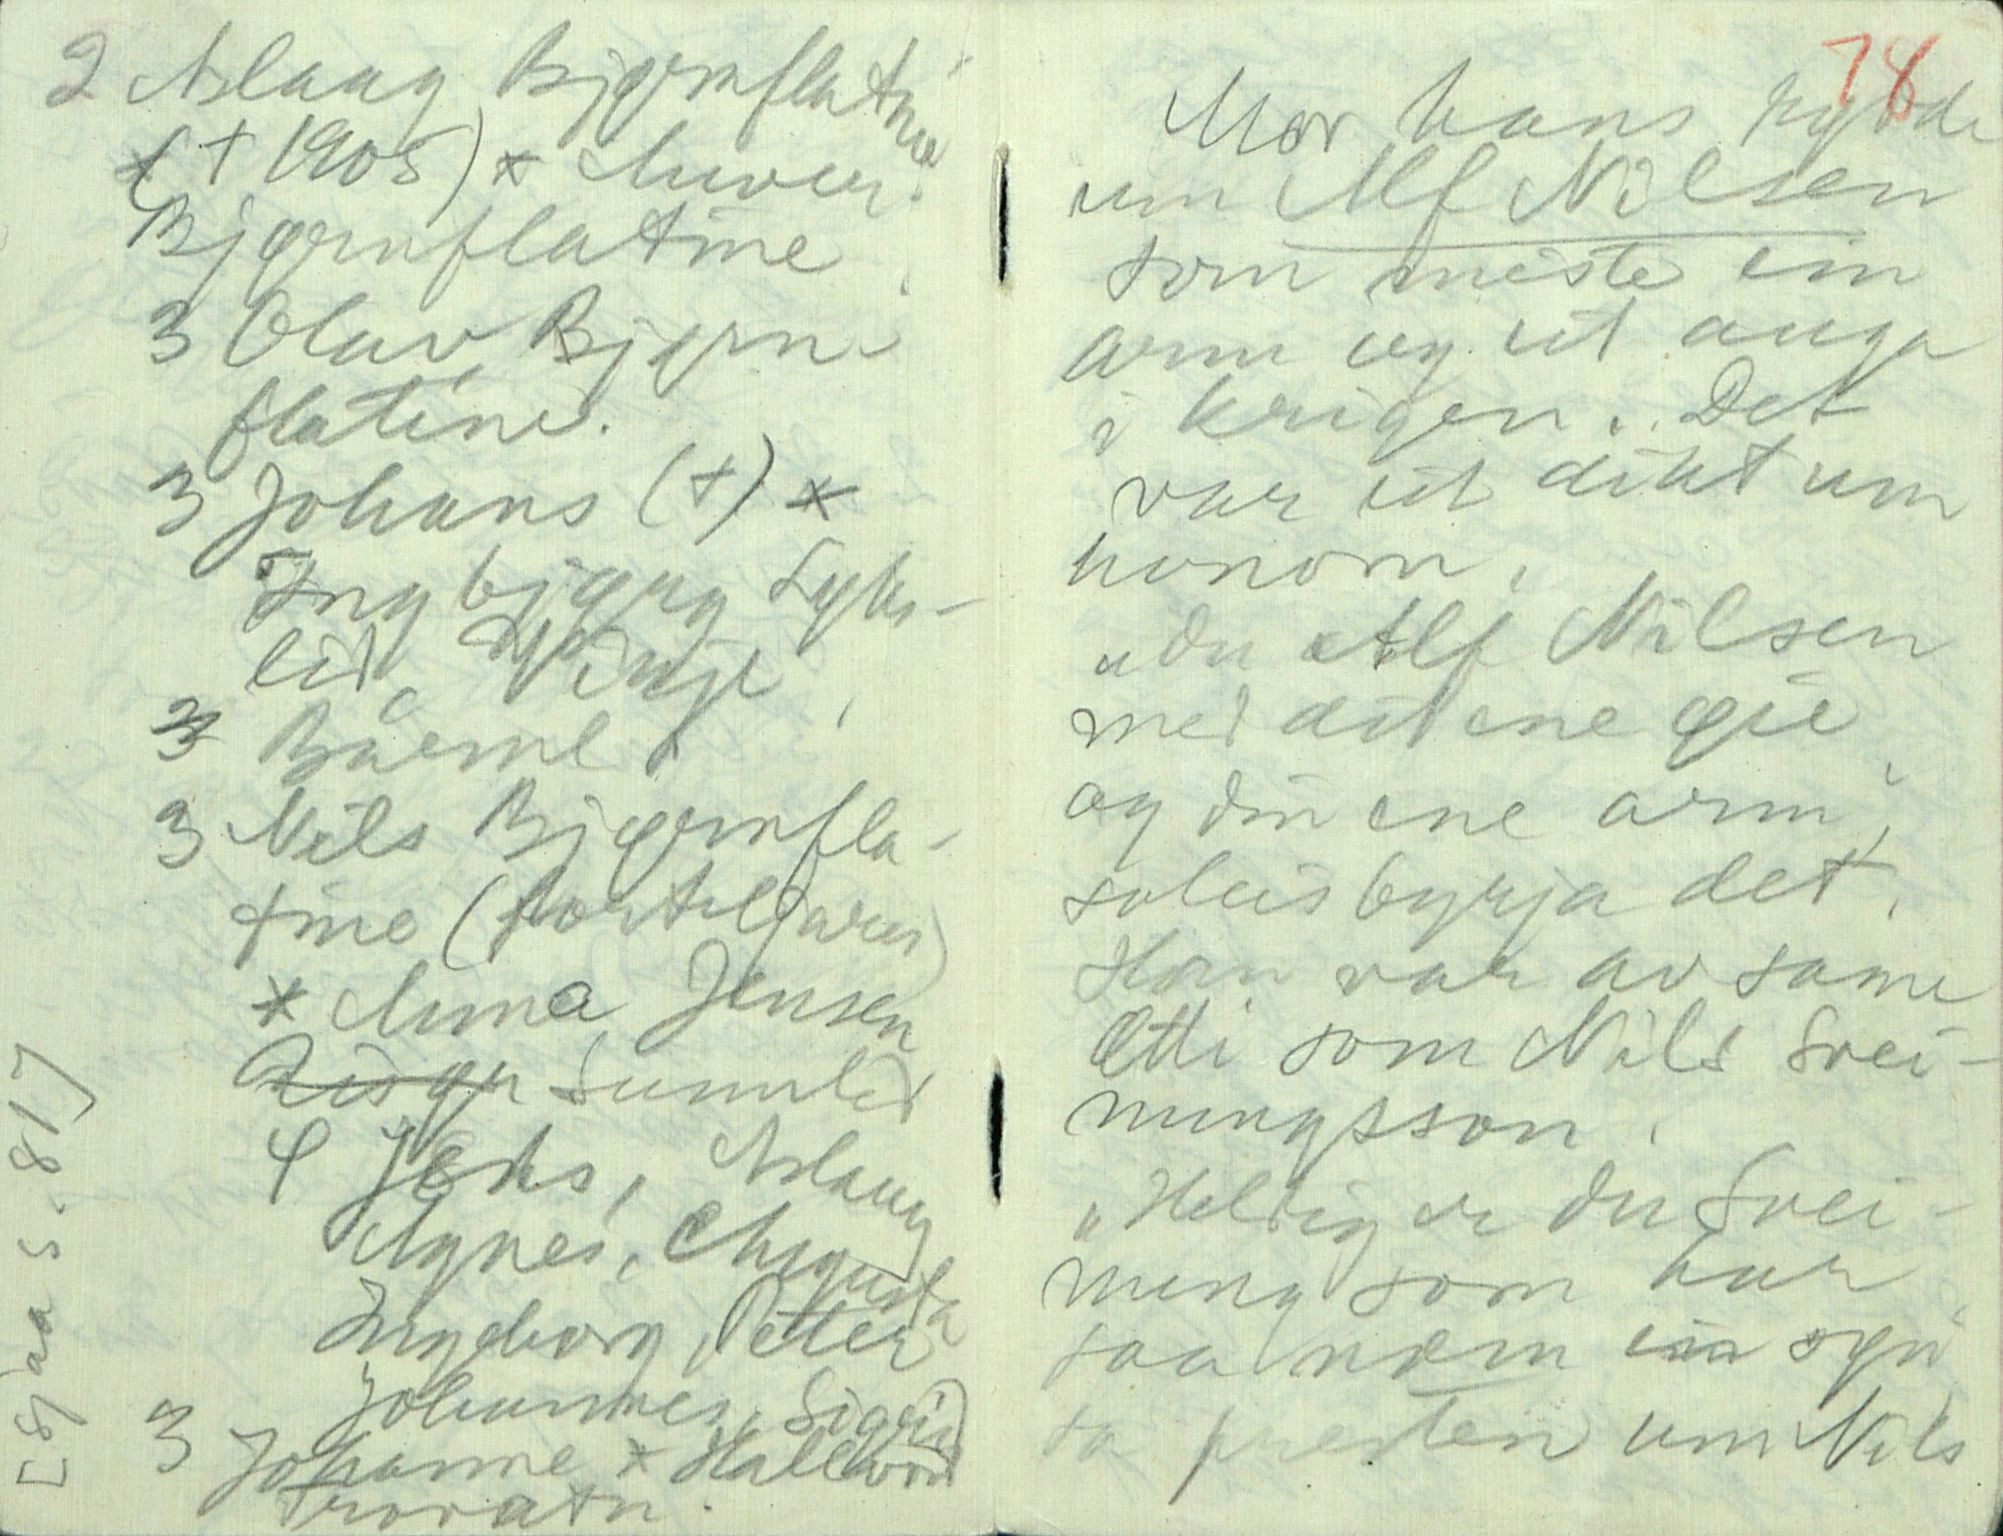 2 Aslaug Bjørnflatine
(† 1905) × Anver.
Bjørnflatine
3 Olav Bjørn-
flatine.
3 Johans (†) ×
Ingebjørg Lyks-
lid, Vinje
3 Båerne
3 Nils Bjørnfla-
tine (Forteljaren)
× Anna Jensen
Sunnlid
4 Jens, Aslaug
Agnes, Augusta
Ingeborg, Petter
Johannes, Sigrid
3 Johanne × Hallvor
Trovatn.
[Sjaa s. 81]
78
Mor hans
um Alf Nilsen
som miste ein
arm og eit auga
i krigen. Det
var eit dikt um
honom.
„Du Alf Nilsen
med dit ene øie
og din ene arm",
soleis byrja det.
Han var av same
Ætti som Nils Svei-
nungsson.
„Heldig er du Svei-
nung som har
saa
sa presten um Nils